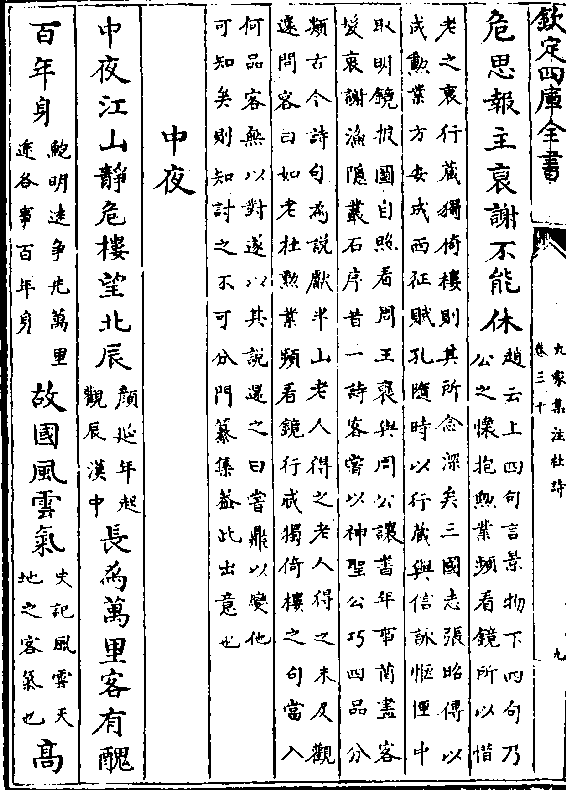 欽定四庫全書
九家集注杜詩
卷三十
九
危思報主衰謝不能休
趙云上四句言景物下四句乃
公之懷抱勲業頻看鏡所以惜
老之衰行藏獨倚樓則其所念深矣三國志張昭傳以
成勲業方安成西征賦孔隨時以行藏與信詠中
取明鏡披圖自照看問王褒與周公讓書年事盡容
髮衰謝漁隱叢石序昔一詩客嘗以神聖公巧四品分
類古今詩句為說獻半山老人得之老人得之未及觀
遽問客曰如老杜勲業頻看鏡行成獨倚樓之句當入
何品客無以對遂以其說還之曰嘗鼎以臠他
可知矣則知討之不可分門纂集蓋此出意也
中夜
中夜江山靜危樓望北辰
顔延年起
觀辰漢中
長為萬里客有醜
百年身
鮑明遠爭先萬里
途各事百年身
故國風雲氣
史記風雲天
地之客氣也
高